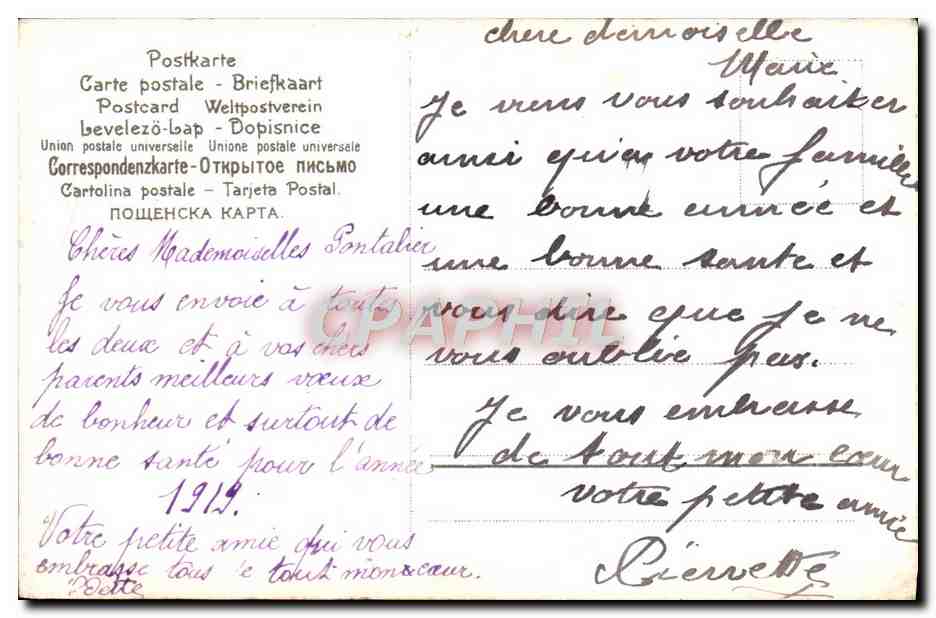 Postkarte
Carte postale - Briefkaart
Postcard Weltpostverein
Levelező-Lap - Dopisnice
Union postale universelle Unione postale universale
Correspondenzkarte - Открытое письмо
Cartolina postale - Tarjeta Postal.
ПОЩЕНСКА КАРТА.
Chères Mademoiselles Pontalier
Je vous envoie à toutes
les deux et à vos chers
parents meilleurs vœux
de bonheur et surtout de
bonne santé pour l'année
1919.
Votre petite amie qui vous
embrasse tous de tout mon cœur.
Odette
chere demoiselle
Marie
Je viens vous souhaiter
ainsi qu'a votre famille
une bonne année et
une bonne sante et
vous dire que je ne
vous oublie pas.
Je vous embrasse
de tout mon cœur
votre petite amie
Pierrette
CPAPHIL